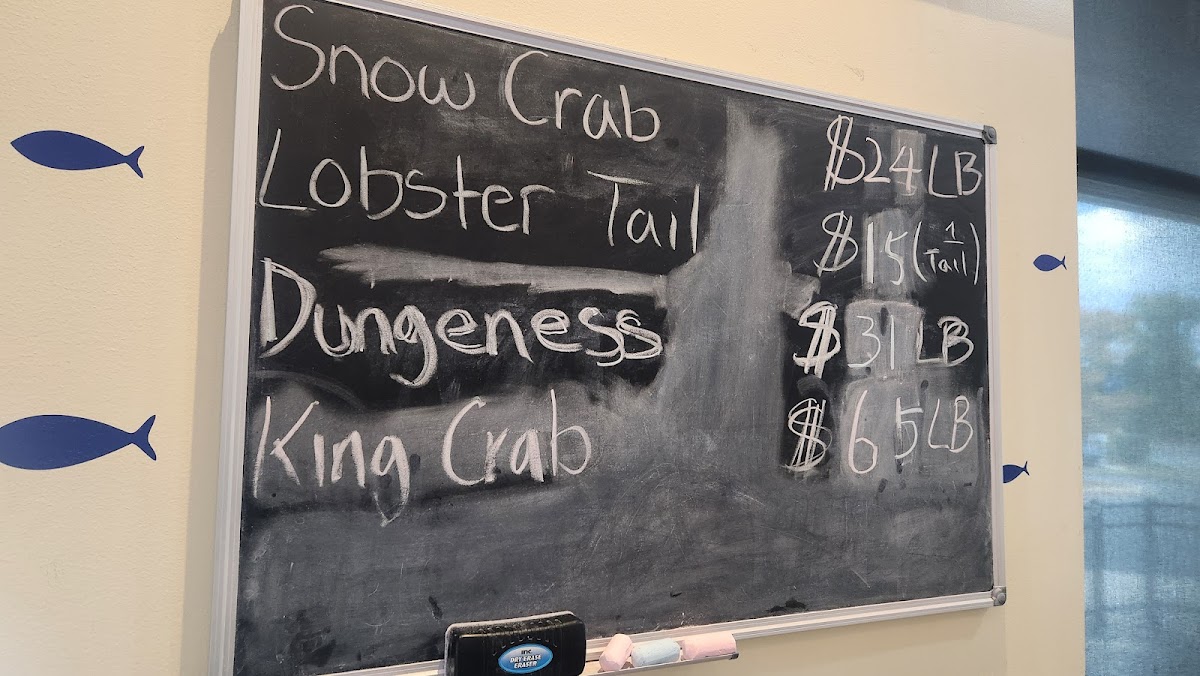 Snow Crab $24 LB
Lobster Tail $15 (1 Tail)
Dungeness $31 LB
King Crab $65 LB
inc
DRY ERASE
ERASER